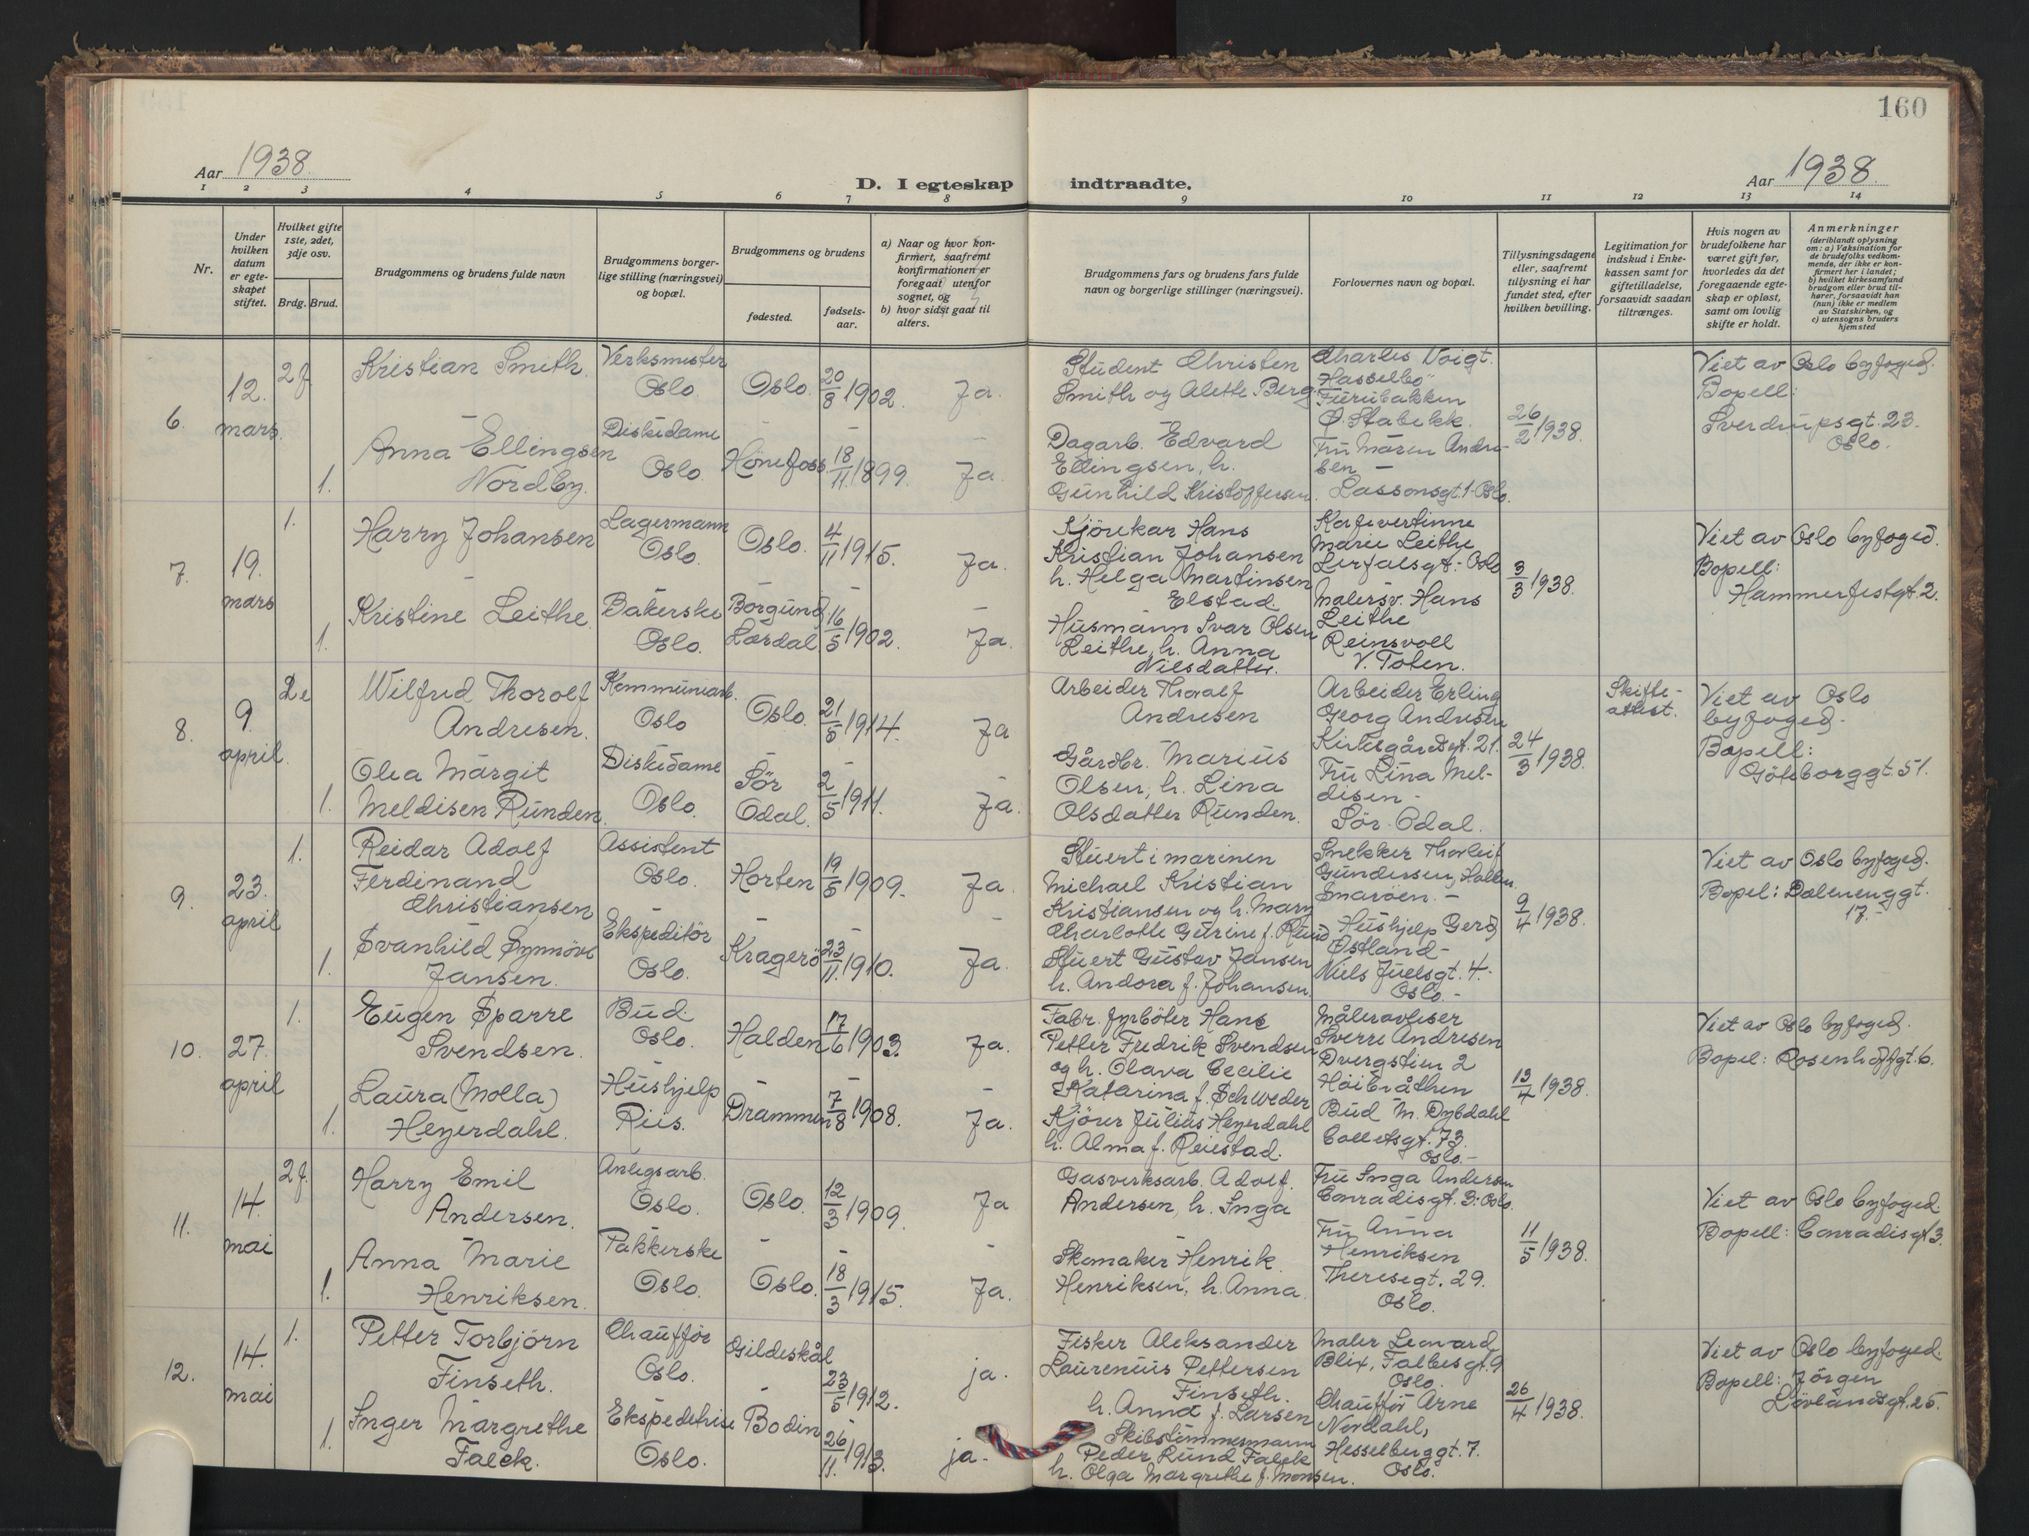 160
Aar 1938.
D. I egteskap indtraadte.
Aar 1938.
1 2 3 4 5 6 7 8 9 10 11 12 13 14
Nr.
Under hvilken datum er egteskapet stiftet.
Hvilket gifte 1ste, 2det, 3dje osv.
Brdg. Brud.
Brudgommens og brudens fulde navn
Brudgommens borgerlige stilling (næringsvei) og bopæl.
Brudgommens og brudens
fødested.
fødselsaar.
a) Naar og hvor konfirmert, saafremt konfirmationen er foregaat utenfor sognet, og
b) hvor sidst gaat til alters.
Brudgommens fars og brudens fars fulde navn og borgerlige stillinger (næringsvei).
Forlovernes navn og bopæl.
Tillysningsdagene eller, saafremt tillysning ei har fundet sted, efter hvilken bevilling.
Legitimation for indskud i Enkekassen samt for giftetilladelse, forsaavidt saadan tiltrænges.
Hvis nogen av brudefolkene har været gift før, hvorledes da det foregaaende egteskap er opløst, samt om lovlig skifte er holdt.
Anmerkninger
(deriblandt oplysning om: a) Vaksination for de brudefolks vedkommende, der ikke er konfirmert her i landet; b) hvilket kirkesamfund brudgom eller brud tilhører, forsaavidt han (hun) ikke er medlem av Statskirken, og c) utensogns bruders hjemsted
6.
12. mars.
2f
Kristian Smith.
Verksmester
Oslo.
Oslo.
20/8 1902.
Ja.
Student Christen
Smith og Alette Berg
Charles Voigt.
Hasselbö
Furubakken
Ø. Stabekk.
26/2 1938.
Viet av Oslo byfoged.
Bopell:
Sverdrupsgt. 23.
Oslo.
1.
Anna Ellingsen
Nordby.
Diskedame
Oslo.
Hönefoss.
18/11 1899.
Ja.
Dagarb. Edvard
Ellingsen, h.
Gunhild Kristoffersen.
Fru Maren Andresen -
Lassonsgt. 1 - Oslo.
7.
19. mars
1.
Harry Johansen
Lagermann
Oslo.
Oslo.
4/11 1915.
Ja.
Kjörekar Hans
Kristian Johansen
h. Helga Martinsen
Elstad.
Kafevertinne
Marie Leithe
Lerfalsgt. - Oslo
3/3 1938.
Viet av Oslo byfoged.
Bopell:
Hammerfestgt. 2.
1.
Kristine Leithe.
Bakerske
Oslo.
Borgund
Lærdal
16/5 1902.
Ja.
Husmann Ivar Olsen
Leithe, h. Anna
Nilsdatter.
Malersv. Hans
Leithe
Reinsvoll
V. Toten.
8.
9. april.
2e
Wilfred Thorolf
Andresen.
Kommunearb.
Oslo
Oslo.
21/5 1914.
Ja
Arbeider Thorolf
Andresen
Arbeider Erling
Georg Andresen
Kirkegårdsgt. 21.
24/3 1938.
Skifteattest.
Viet av Oslo
byfoged.
Bopell:
Göteborggt. 51.
1.
Olea Margit
Meldisen Runden.
Diskedame
Oslo.
Sör
Odal.
2/5 1911.
Ja.
Gårdbr. Marius
Olsen, h. Lina
Olsdatter Runden.
Fru Lina Meldisen -
Sör-Odal.
9.
23. april
1.
Reidar Adolf
Ferdinand
Christiansen
Assistent
Oslo.
Horten
19/5 1909.
Ja.
Stuert i marinen
Michael Kristian
Kristiansen og h. Mary
Charlotte Getrine f. Rund
Snekker Thorleif
Gundersen,
Snarøen. -
9/4 1938.
Viet av Oslo byfoged.
Bopel: Dælenenggt.
17. -
1.
Svanhild Synnöve
Jansen.
Ekspeditör
Oslo.
Kragerö
23/11 1910.
Ja.
Stuert Gustav Jansen
h. Andora f. Johansen.
Hushjelp Gerd
Østland -
Niels Juelsgt. 4.
Oslo. -
10.
27. april
1.
Eugen Sparre
Svendsen.
Bud.
Oslo.
Halden
17/6 1903.
Ja.
Fabr. fyrböter Hans
Petter Fredrik Svendsen
og h. Olava Cecilie
Katarina f. Schweder
Måleravleser
Sverre Andresen
Dvergstien 2
Höibråthen
13/4 1938.
Viet av Oslo byfoged.
Bopel: Rosenhoffgt. 6.
1.
Laura (Molla)
Heyerdahl.
Hushjelp
Riis.
Drammen
7/8 1908.
Ja.
Kjörer Julius Heyerdahl
h. Alma f. Reiestad.
Bud M. Dybdahl
Colletsgt. 73.
Oslo. -
11.
14. mai
2f.
Harry Emil
Andersen.
Anlegsarb.
Oslo.
Oslo.
12/3 1909.
Ja
Gasverksarb. Adolf.
Andersen, h. Inga
Fru Inga Andersen
Conradisgt. 3. Oslo.
11/5 1938.
Viet av Oslo byfoged.
Bopell: Conradisgt 3.
1.
Anna Marie
Henriksen.
Pakkerske
Oslo.
Oslo.
18/3 1915.
Ja.
Skomaker Henrik
Henriksen, h. Anna.
Fru Anna
Henriksen
Theresegt. 29.
Oslo.
12.
14. mai
1.
Petter Torbjörn
Finseth.
Chaufför
Oslo.
Gildeskål
23/5 1912.
ja.
Fisker Aleksander
Laurenius Pettersen
Finseth.
h. Anna f. Larsen
Maler Leonard
Blix, Falbesgt. 9
Oslo.
26/4 1938.
Viet av Oslo byfoged.
Bopell: Jörgen
Lövlandsgt. 25.
1.
Inger Margrethe
Falck.
Ekspeditrise
Oslo.
Bodin
26/11 1913.
ja.
Skibstimmermann
Peder Lund Falck
h. Olga Margrethe f. Monsen.
Chaufför Arne
Nordahl,
Hesselberggt. 7.
Oslo.